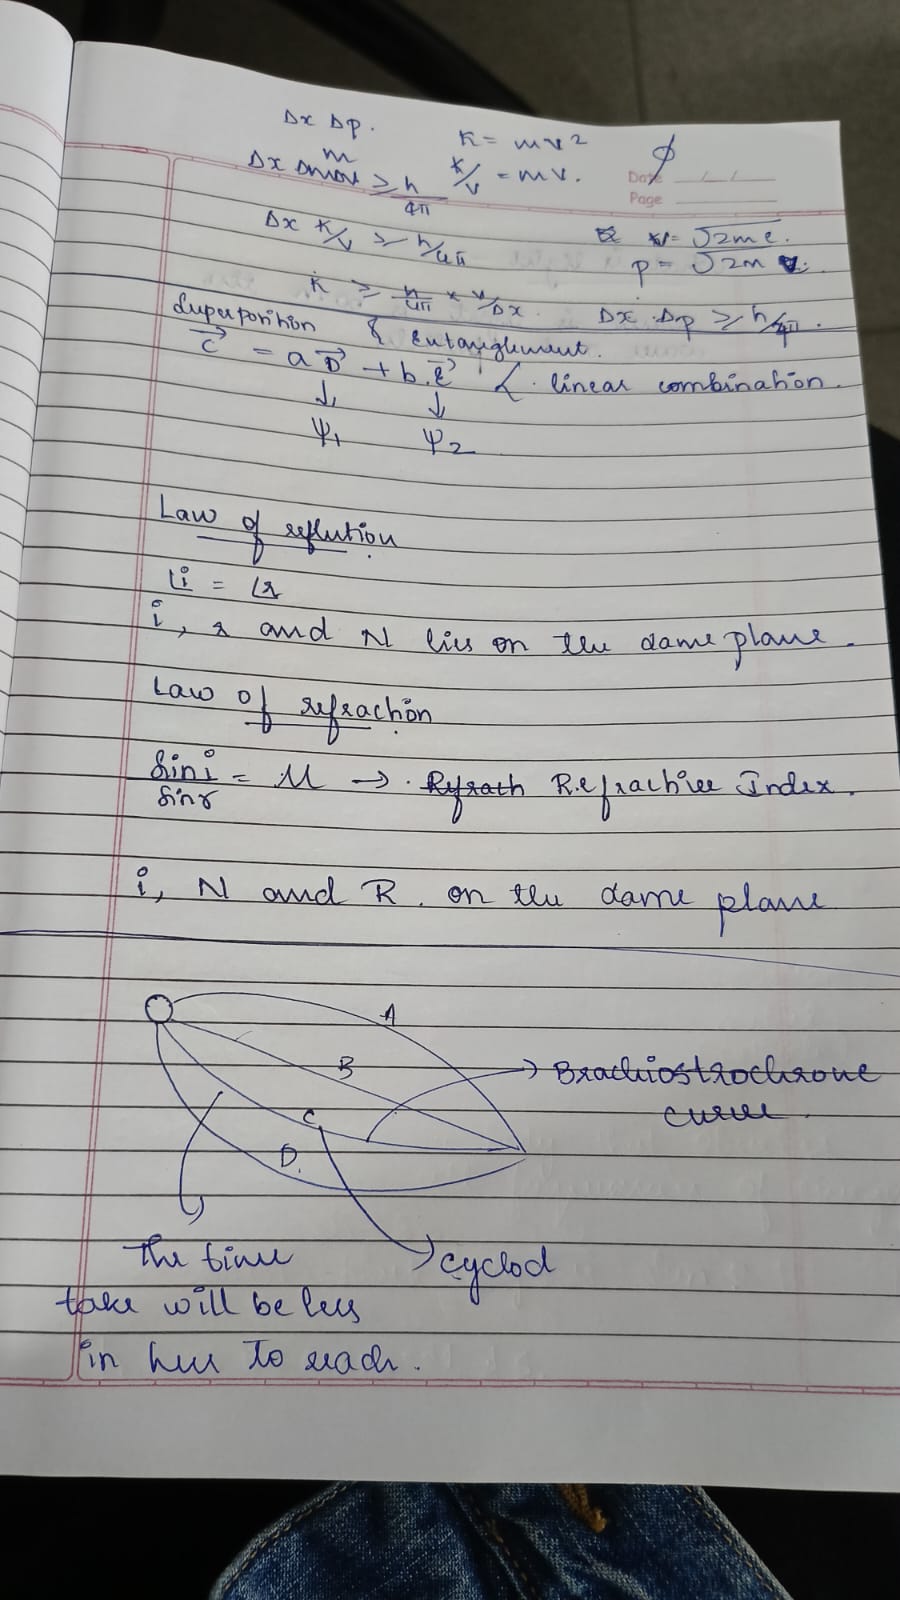 Δx Δp.
K = mv2
ϕ
m
Δx Δmov ≥ h/4π
K/v = mv.
Date
Page
Δx K/v ≥ h/4π
= √2me.
p = √2m
K ≥ h/4π × v/Δx.
Δx . Δp ≥ h/4π.
Superposition & Entanglement.
C = a D + b. E
linear combination.
↓ ↓
ψ1 ψ2
Law of reflution
∠i = ∠r
i, r and N lies on the dame plane.
Law of refraction
Sin i / Sin r = M → Refractive Index.
i, N and R. on the dame plane
A
B
→ Brachiostrochrone
curve
C
D.
The time
cyclod
take will be less
in her To reach.